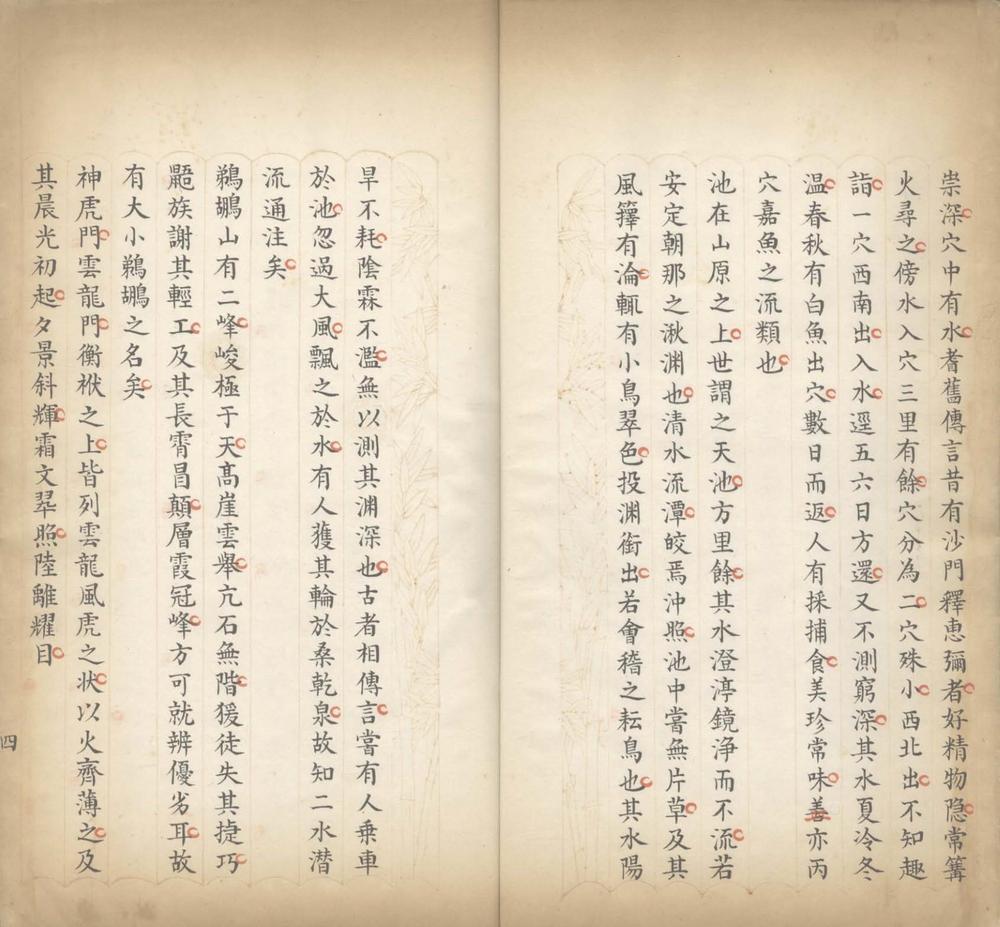 崇深穴中有水耆舊傳言昔有沙門釋惠彌者好精物隐常篝
火尋之傍水入穴三里有餘穴分為二穴殊小西北出不知趣
詣一穴西南出入水逕五六日方還又不測窮深其水夏冷冬
温春秋有白魚出穴數日而返人有採捕食美珍常味善亦丙
穴嘉魚之流類也
池在山原之上世謂之天池方里餘其水澄渟鏡浄而不流若
安定朝那之湫淵也清水流潭皎焉沖照池中嘗無片草及其
風籜有淪輒有小鳥翠色投渊銜出若會稽之耘鳥也其水陽
旱不耗陰霖不濫無以測其渊深也古者相傳言嘗有人乗車
於池忽過大風飄之於水有人獲其輪於桑乾泉故知二水潛
流通注矣
鵜鶘山有二峰峻極于天髙崖雲舉亢石無階猨徒失其捷巧
鼯族謝其輕工及其長霄冒顛層霞冠峰方可就辨優劣耳故
有大小鵜鶘之名矣
神虎門雲龍門衡栿之上皆列雲龍風虎之状以火齊薄之及
其晨光初起夕景斜輝霜文翠照陸離耀目
四